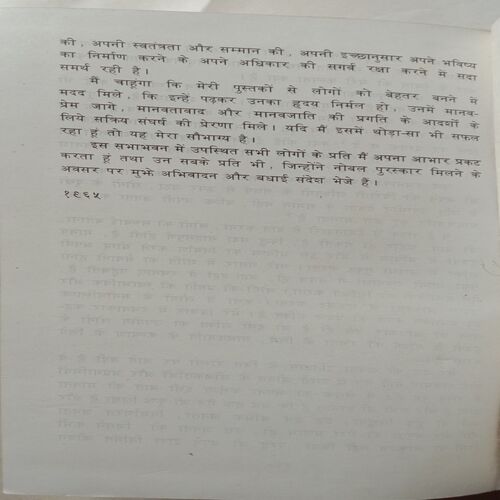 की, अपनी स्वतंत्रता और सम्मान की, अपनी इच्छानुसार अपने भविष्य
का निर्माण करने के अपने अधिकार की सगर्व रक्षा करने में सदा
समर्थ रही है।
मैं चाहूंगा कि मेरी पुस्तकों से लोगों को बेहतर बनने में
मदद मिले, कि इन्हें पढ़कर उनका हृदय निर्मल हो, उनमें मानव-
प्रेम जागे, मानवतावाद और मानवजाति की प्रगति के आदर्शों के
लिये सक्रिय संघर्ष की प्रेरणा मिले। यदि मैं इसमें थोड़ा-सा भी सफल
रहा हूं तो यह मेरा सौभाग्य है।
इस सभाभवन में उपस्थित सभी लोगों के प्रति मैं अपना आभार प्रकट
करता हूं तथा उन सबके प्रति भी, जिन्होंने नोबल पुरस्कार मिलने के
अवसर पर मुझे अभिवादन और बधाई संदेश भेजे हैं।
१९६५